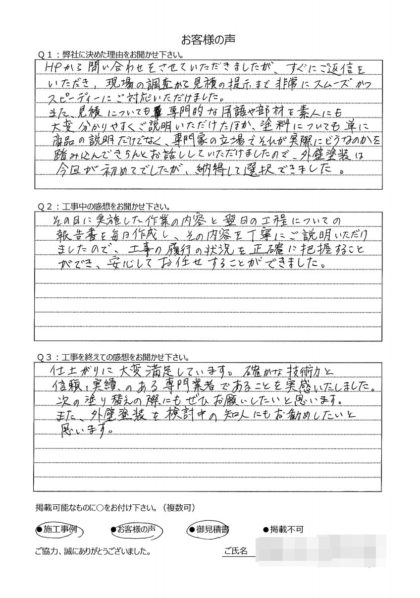 お客様の声
Q1：弊社に決めた理由をお聞かせ下さい。
HPから問い合わせをさせていただきましたが、すぐにご返信を
いただき、現場の調査から見積の提示まで非常にスムーズかつ
スピーディーにご対応いただけました。
また、見積についても専門的な用語や部材を素人にも
大変分かりやすくご説明いただけたほか、塗料についても単に
商品の説明だけでなく、専門家の立場でそれが実際にどうなのかを
踏み込んできちんとお話ししていただけましたので、外壁塗装は
今回が初めてでしたが、納得して選択できました。
Q2：工事中の感想をお聞かせ下さい。
その日に実施した作業の内容と翌日の工程についての
報告書を毎日作成し、その内容を丁寧にご説明いただけ
ましたので、工事の履行の状況を正確に把握すること
ができ、安心してお任せすることができました。
Q3：工事を終えての感想をお聞かせ下さい。
仕上がりに大変満足しています。確かな技術力と
信頼と実績のある専門業者であることを実感いたしました。
次の塗り替えの際にもぜひお願いしたいと思います。
また、外壁塗装を検討中の知人にもお勧めしたいと
思います。
掲載可能なものに○をお付け下さい。（複数可）
●施工事例 ●お客様の声 ●御見積書 ●掲載不可
ご協力、誠にありがとうございました。 ご氏名